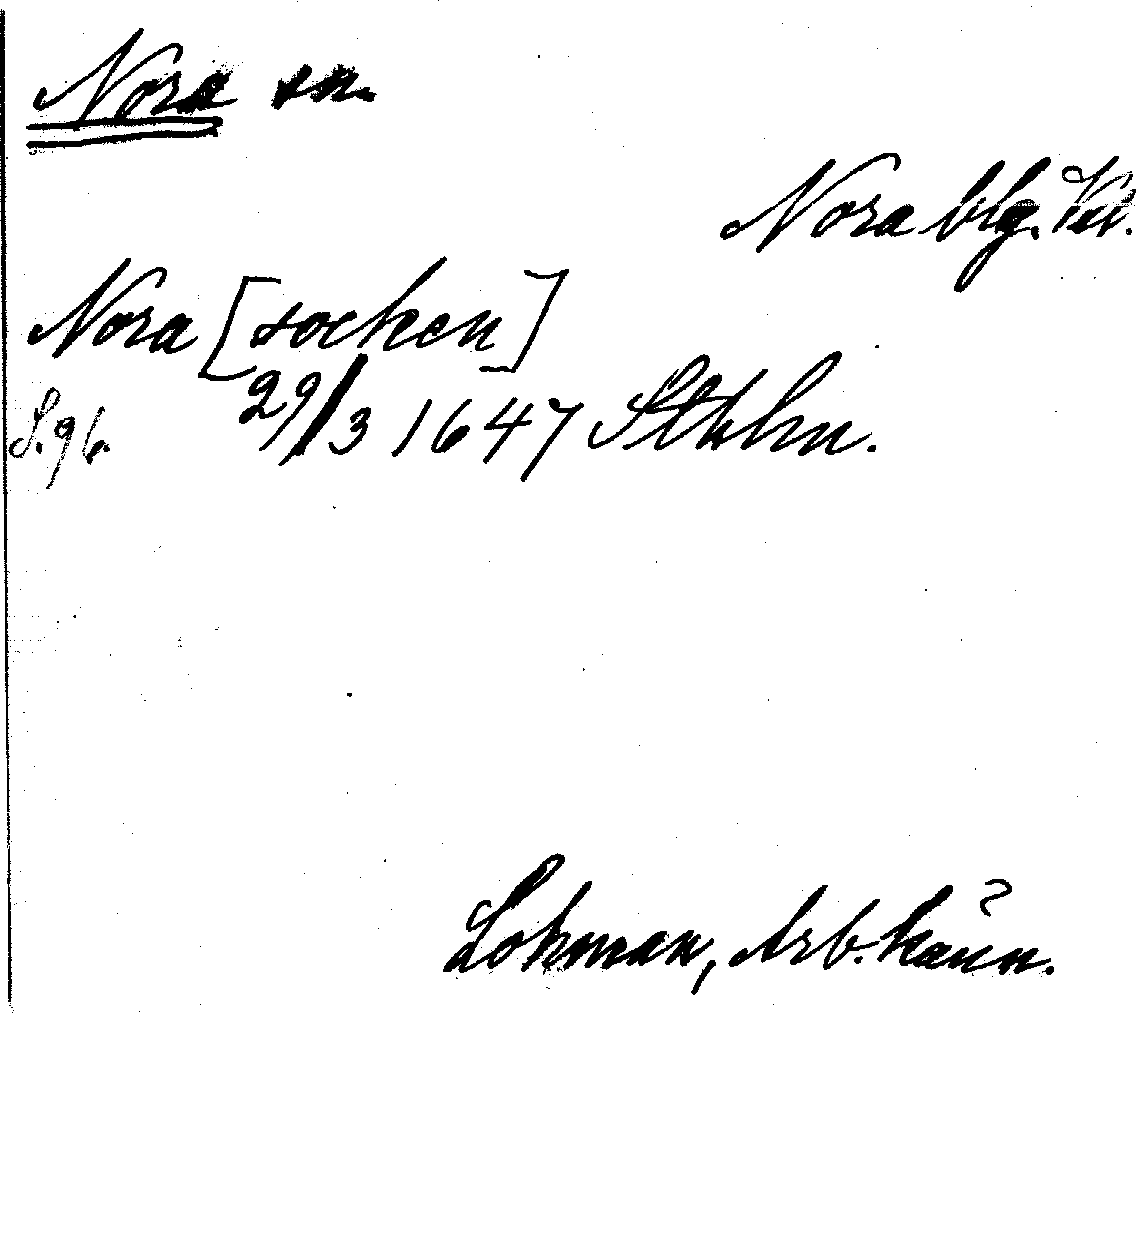 Nora sn.
Nora blg. Vstm.
Nora [socken]
S. 96. 29/3 1647 Sthlm.
Lohman, Arb.